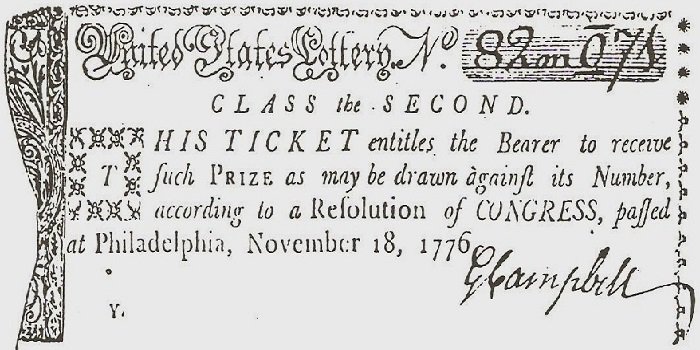 United States Lottery. Nº. 82m
CLASS the SECOND.
THIS TICKET entitles the Bearer to receive
ſuch PRIZE as may be drawn againſt its Number,
according to a Reſolution of CONGRESS, paſſed
at Philadelphia, November 18, 1776.
G Campbell
Y.